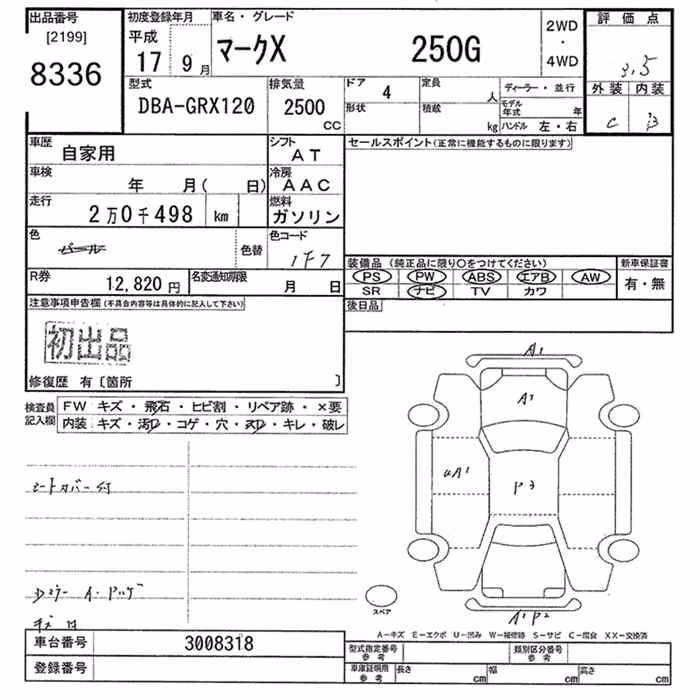 出品番号 初度登録年月 車名・グレード 2WD ・ 4WD 評価点
[2199] 平成
8336 17 9月 マークX 250G 3.5
型式 排気量 ドア 4 定員 人 ディーラー・並行 外装 内装
DBA-GRX120 2500 CC 形状 積載 kg モデル年式 年 C B
ハンドル 左・右
車歴 自家用 シフト AT セールスポイント(正常に機能するものに限ります)
車検 年 月( 日) 冷房 AAC
走行 2万0千498 km 燃料 ガソリン
色 パール 色替 色コード 1F7 装備品(純正品に限り○をつけてください) 新車保証書
PS PW ABS エアB AW 有・無
R券 12,820円 名変通知期限 月 日 SR ナビ TV カワ
注意事項申告欄(不具合内容等は具体的に記入して下さい) 後日品
初出品
修復歴 有〔箇所 〕
検査員記入欄 FW キズ・飛石・ヒビ割・リペア跡・×要
内装 キズ・汚れ・コゲ・穴・スレ・キレ・破レ
A1
A1
uA1 P3
シートカバー付
A1P2
スペア
A-キズ E-エクボ U-凹み W-補修跡 S-サビ C-腐食 XX-交換済
車台番号 3008318 型式指定番号 参考 類別区分番号 参考
登録番号 車庫証明用 参考 長さ cm 幅 cm 高さ cm